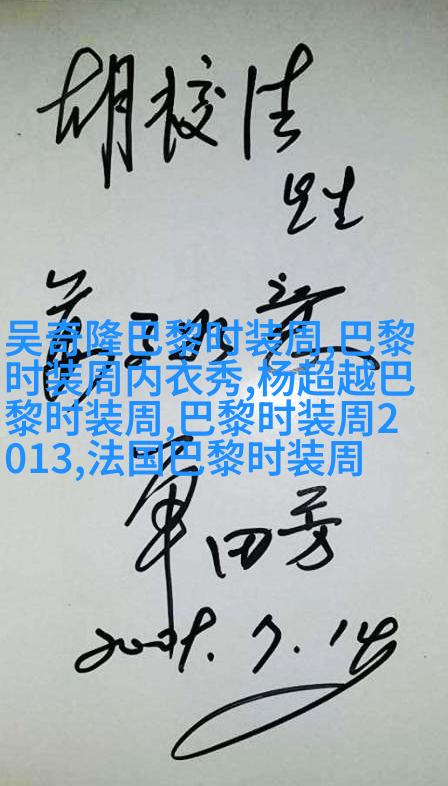 胡校
吴奇隆巴黎时装周,巴黎
时装周内衣秀,杨超越巴
黎时装周,巴黎时装周2
013,法国巴黎时装周
单田芳
7.14